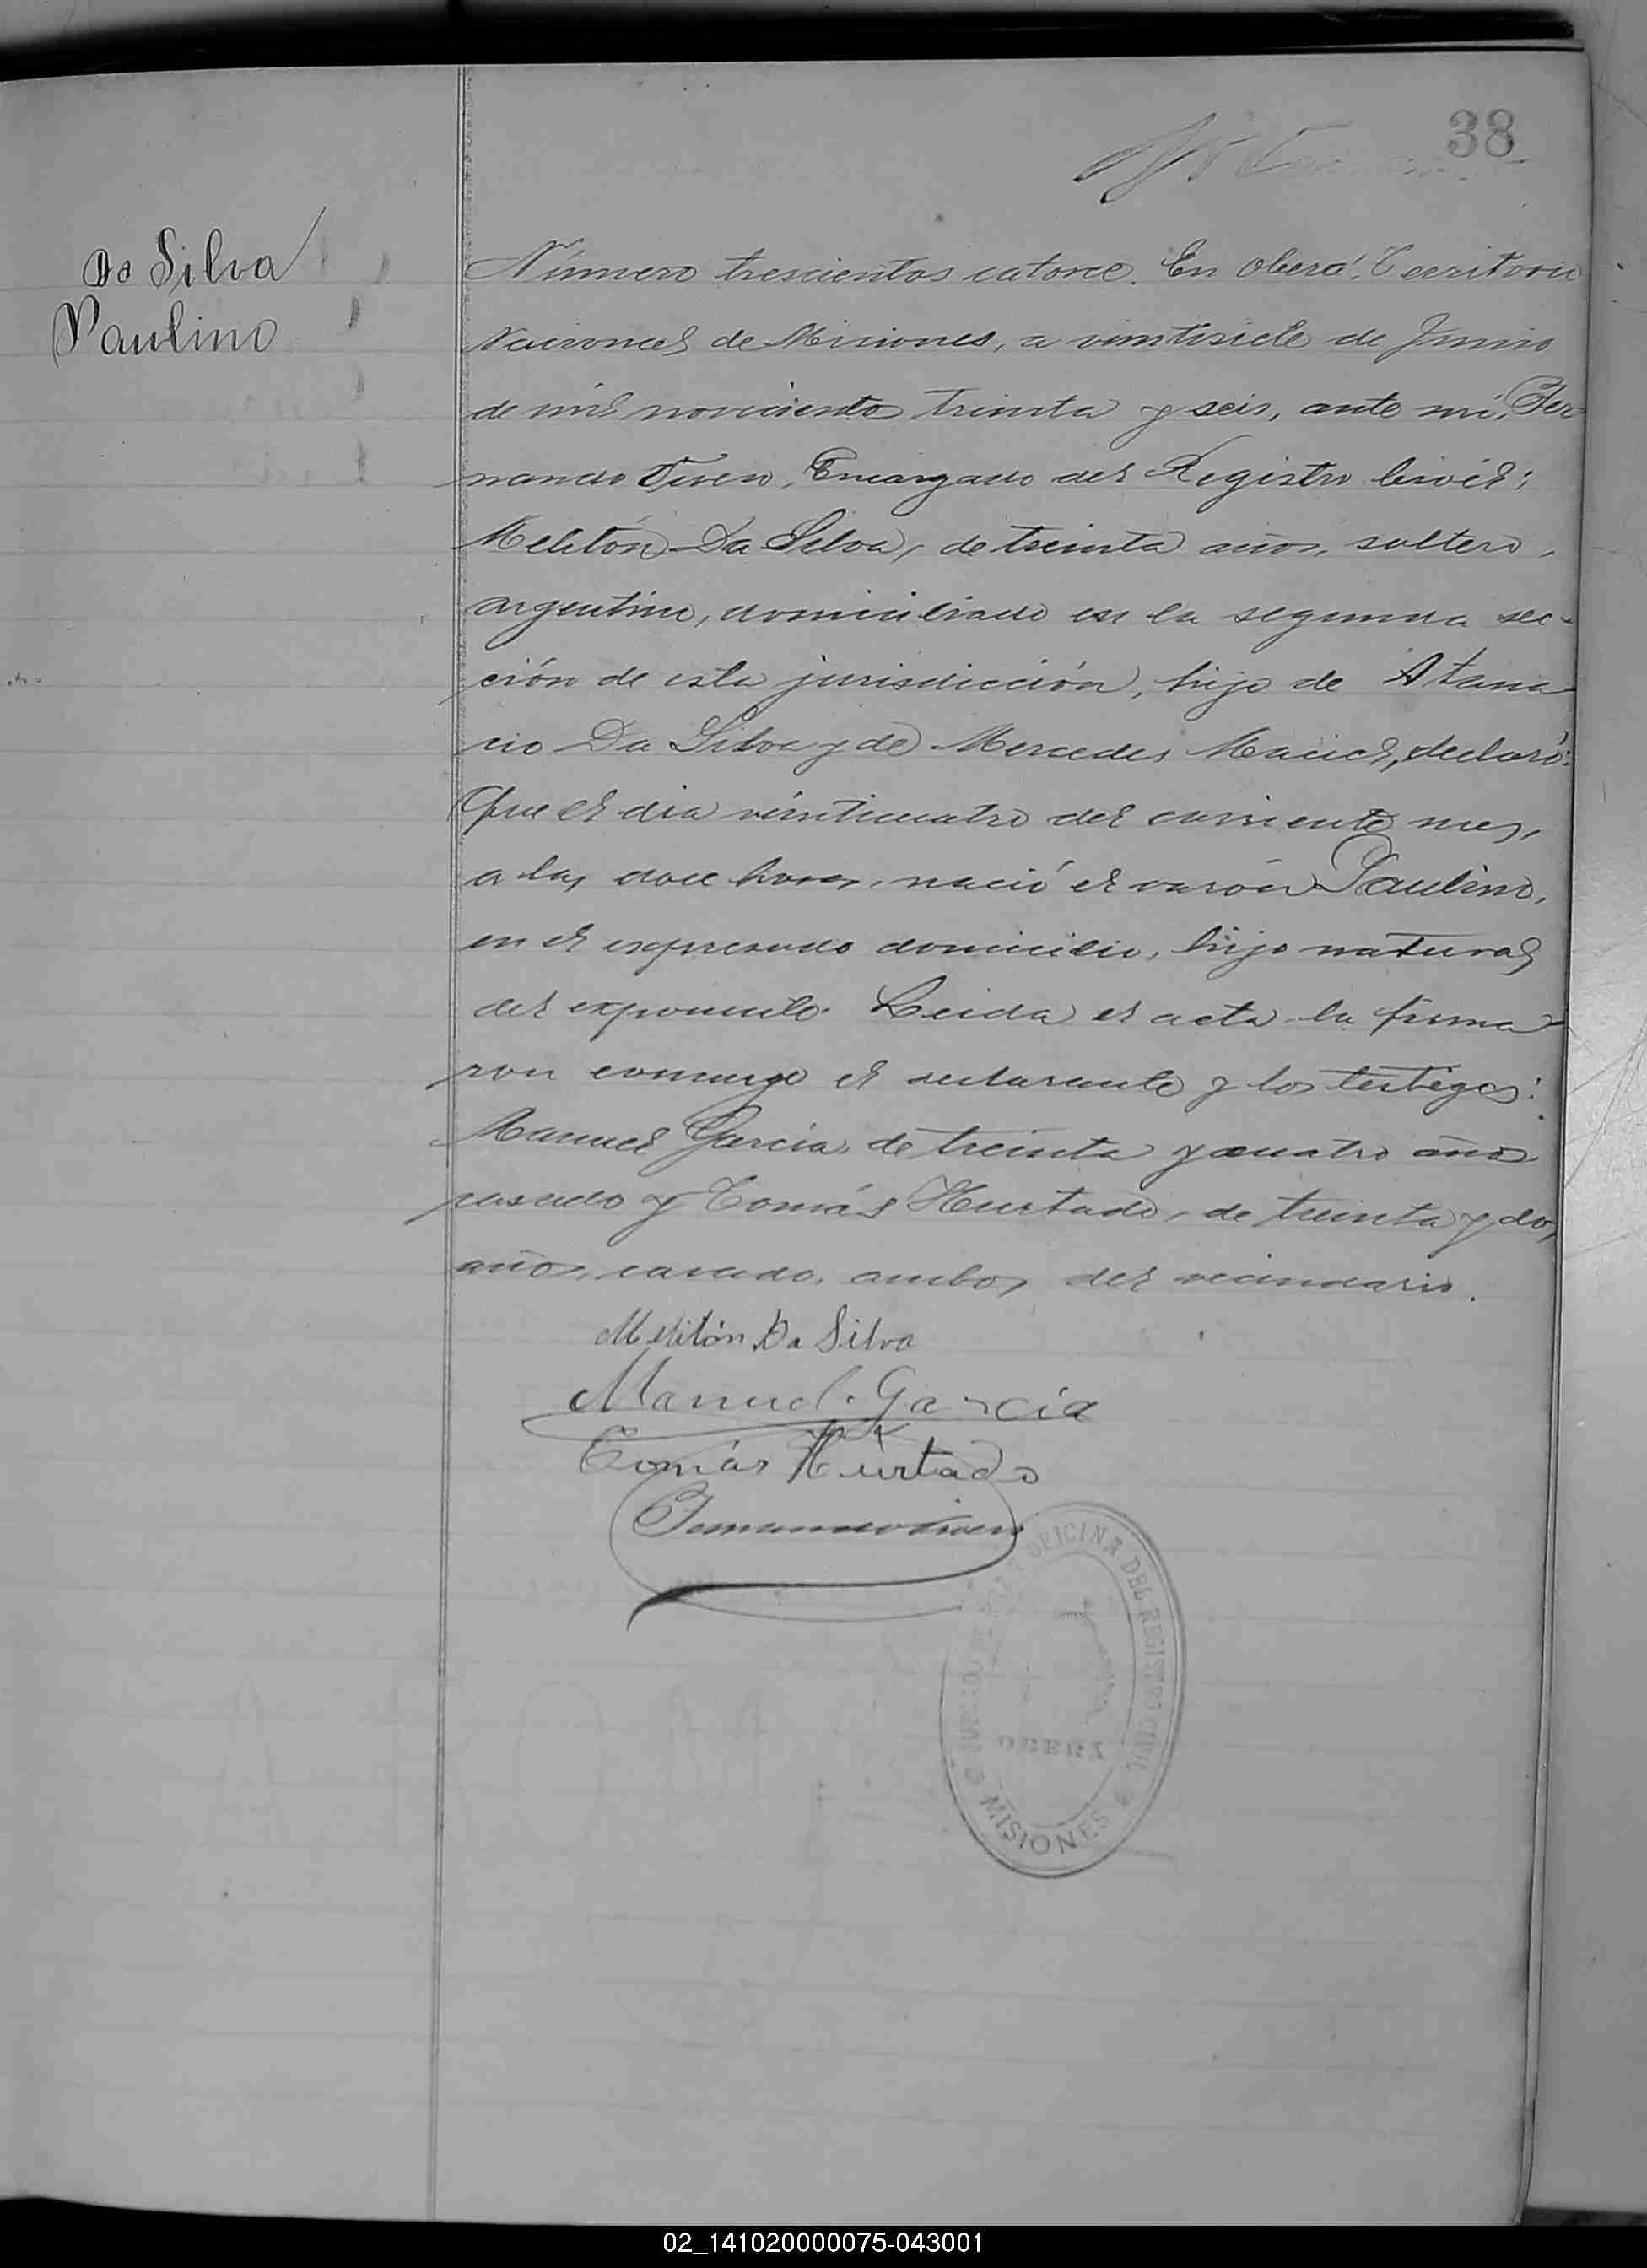 38
Da Silva
Paulino
Número trescientos catorce. En Oberá, Territorio
Nacional de Misiones, a veintisiete de Junio
de mil novecientos treinta y seis, ante mí, Fer-
nando Encargado del Registro Civil;
Melitón Da Silva, de treinta años, soltero,
argentino, domiciliado en la segunda sec-
ción de esta jurisdicción, hijo de Atana
cio Da Silva y de Mercedes Maciel, declaró:
Que el dia veinticuatro del corriente mes,
a las doce horas, nació el varón Paulino,
en el expresado domicilio, hijo natural
del exponente. Leida el acta la firma
ron conmigo el declarante y los testigos:
Manuel García, de treinta y cuatro años
casado y Tomás Hurtado, de treinta y dos
años, casado, ambos del vecindario.
Melitón Da Silva
Manuel García
Tomás Hurtado
OFICINA DEL REGISTRO CIVIL
OBERA
MISIONES
02_141020000075-043001